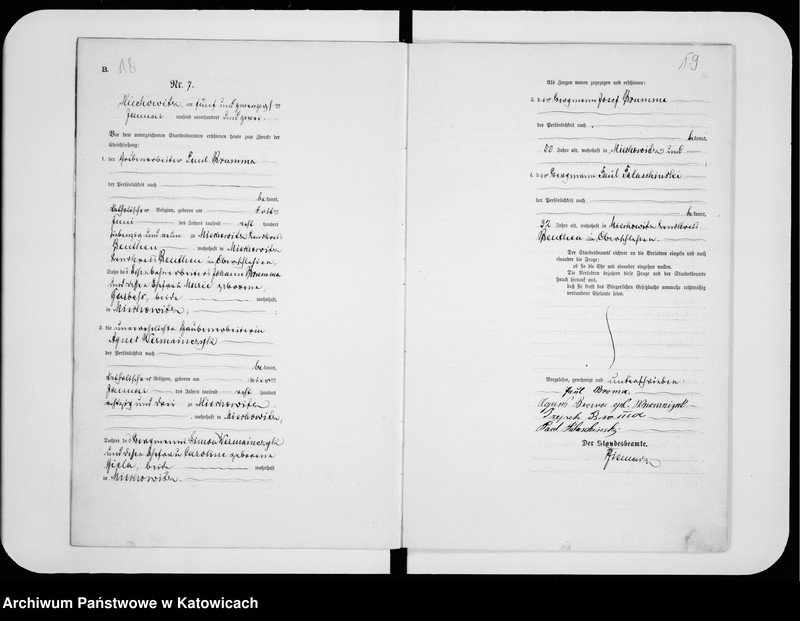 B. 18
Nr. 7.
Miechowitz, am fünf und zwanzigsten
Januar tausend neunhundert und zwei.
Vor dem unterzeichneten Standesbeamten erschienen heute zum Zwecke der
Eheschließung:
1. der Grubenarbeiter Paul Brumma
der Persönlichkeit nach
bekannt,
katholischer Religion, geboren am
Juni des Jahres tausend acht hundert
siebenzig und neun zu Miechowitz Landkreis
Beuthen, wohnhaft in Miechowitz
Landkreis Beuthen in Oberschlesien,
Sohn des Johann Brumma
und dessen Ehefrau Marie geborene
beide wohnhaft,
in Miechowitz;
2. die unverehelichte Grubenarbeiterin
Agnes
der Persönlichkeit nach
bekannt,
katholischer Religion, geboren am
Januar des Jahres tausend acht hundert
achtzig und drei zu Miechowitz
, wohnhaft in Miechowitz,
Tochter des Bergmanns Simon
und dessen Ehefrau Caroline geborene
beide wohnhaft
in Miechowitz.
19
Als Zeugen waren zugezogen und erschienen:
3. der Bergmann Josef Brumma
der Persönlichkeit nach
bekannt,
50 Jahre alt, wohnhaft in Miechowitz und
4. der Bergmann Paul
der Persönlichkeit nach
bekannt,
32 Jahre alt, wohnhaft in Miechowitz Landkreis
Beuthen in Oberschlesien.
Der Standesbeamte richtete an die Verlobten einzeln und nach
einander die Frage:
ob sie die Ehe mit einander eingehen wollen.
Die Verlobten bejahten diese Frage und der Standesbeamte
sprach hierauf aus,
daß sie kraft des Bürgerlichen Gesetzbuchs nunmehr rechtmäßig
verbundene Eheleute seien.
Vorgelesen, genehmigt und unterschrieben:
Paul Broma
Paul
Der Standesbeamte.
Archiwum Państwowe w Katowicach